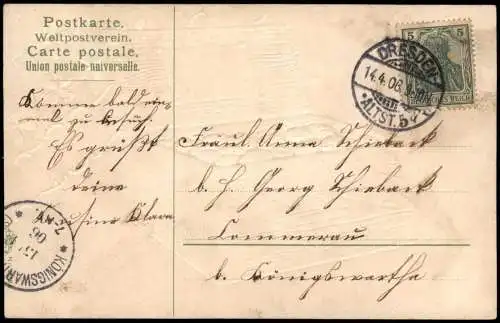 Postkarte.
Weltpostverein.
Carte postale.
Union postale-universelle.
Komme bald ein-
mal zu Besuch.
Es grüßt
deine
Kusine Klara
Fräul. Anna Schieback
b. H. Georg Schieback
Commerau
b. Königswartha
DRESDEN-
14.4.06.
*ALTST. 5
5 5
DEUTSCHES REICH
* KÖNIGSWAR
06